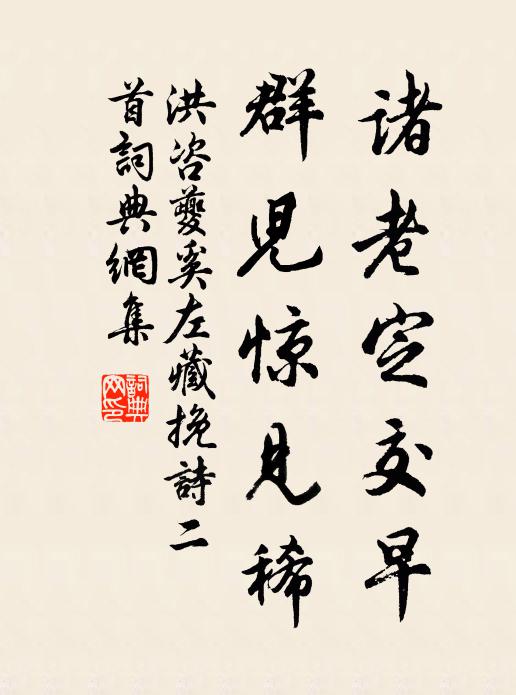 诸老定交早
群児惊見稀
洪咨夔奚左藏挽詩二
首詞典網集
詞典網印